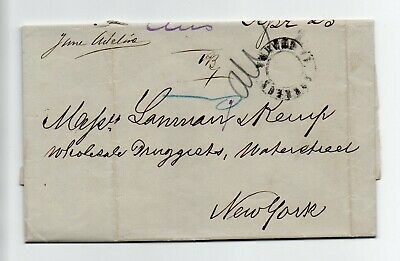 Apr 28
Jane Adeline
193
Messrs. Lanman & Kemp
Wholesale Druggists, Waterstreet
New York